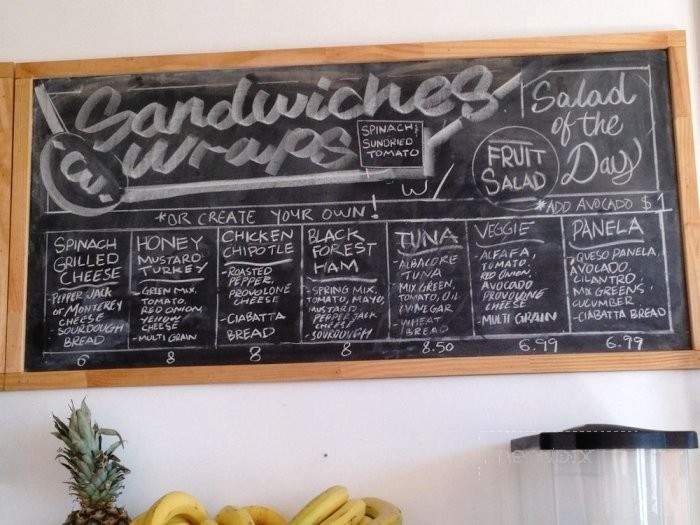 Sandwiches
Wraps
SPINACH
SUNDRIED
TOMATO
W/
FRUIT
SALAD
Salad
of the
Day
*OR CREATE YOUR OWN!
*ADD AVOCADO $1
SPINACH
GRILLED
CHEESE
PEPPER JACK
OF MONTEREY
CHEESE
SOURDOUGH
BREAD
6
HONEY
MUSTARD
TURKEY
-GREEN MIX,
TOMATO,
RED ONION
CHEESE
-MULTI GRAIN
8
CHICKEN
CHIPOTLE
-ROASTED
PEPPER,
PROVOLONE
CHEESE
-CIABATTA
BREAD
8
BLACK
FOREST
HAM
-SPRING MIX,
TOMATO, MAYO,
MUSTARD
PEPPER JACK
CHEESE
-SOURDOUGH
8
TUNA
-ALBACORE
TUNA
MIX GREEN,
TOMATO, OIL
VINEGAR
-WHEAT
BREAD
8.50
VEGGIE
-ALFAFA,
TOMATO,
RED ONION,
AVOCADO
PROVOLONE
CHEESE
-MULTI GRAIN
6.99
PANELA
-QUESO PANELA,
AVOLADO,
CILANTRO,
MIX GREENS,
CUCUMBER
-CIABATTA BREAD
6.99